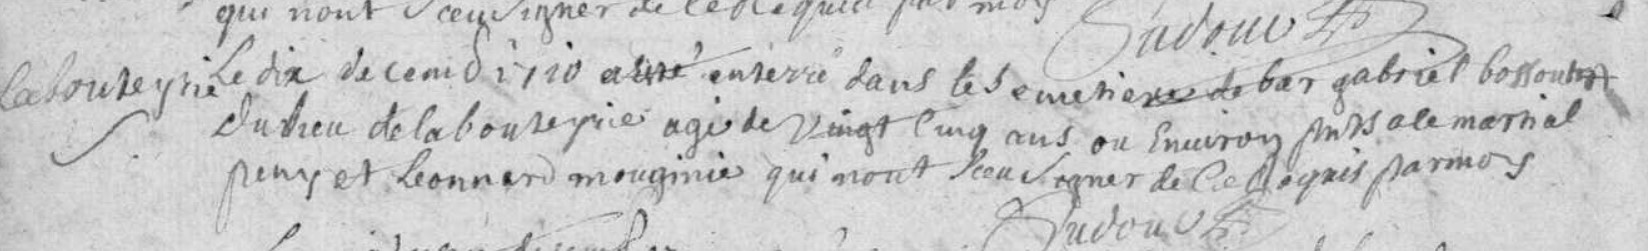 qui nont sceu signer de ce Requis par moy
Sudour
labouteyrie Le dix decemb 1710 a été enterré dans les emetiere de bar gabriel bossoutr
du lieu de labouteyrie agé de vingt cinq ans ou Environ pnts a ce martial
peny et Leonnard mouginie qui nont sceu signer de ce Requis par moy
Sudour